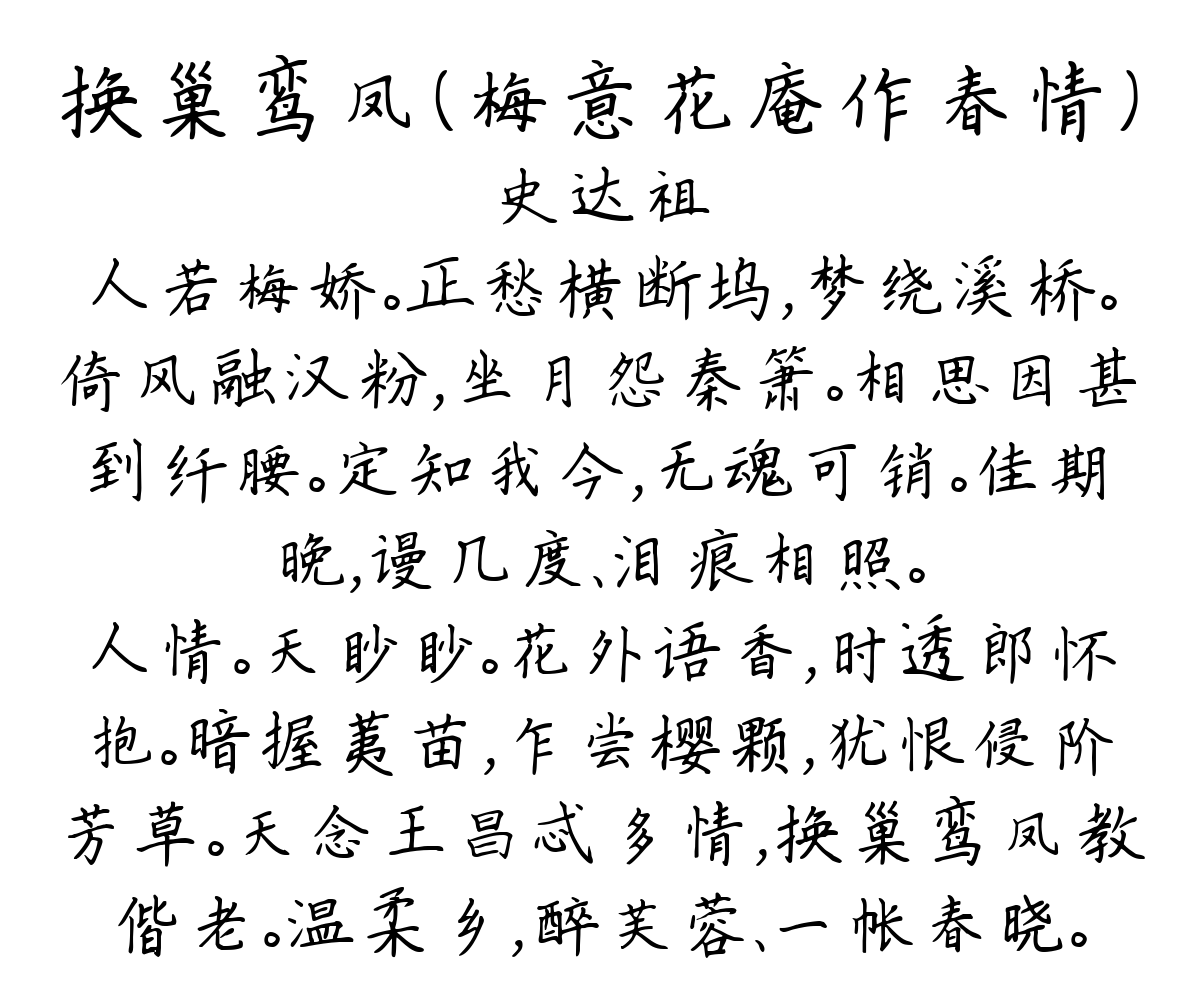 换巢鸾凤(梅意花庵作春情)
史达祖
人若梅娇。正愁横断坞,梦绕溪桥。
倚风融汉粉,坐月怨秦箫。相思因甚
到纤腰。定知我今,无魂可销。佳期
晚,谩几度、泪痕相照。
人情。天眇眇。花外语香,时透郎怀
抱。暗握荑苗,乍尝樱颗,犹恨侵阶
芳草。天念王昌忒多情,换巢鸾凤教
偕老。温柔乡,醉芙蓉、一帐春晓。